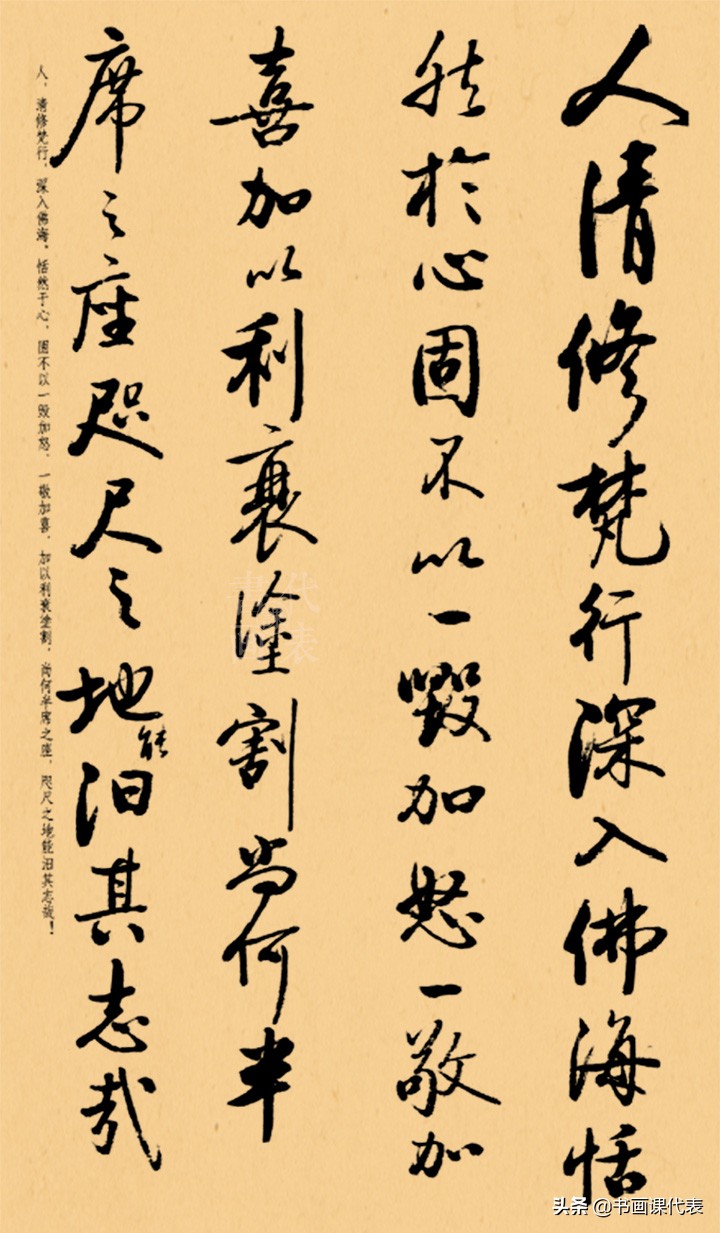 人清修梵行深入佛海恬
然於心固不以一毀加怒一敬加
喜加以利衰塗割尚何半
席之座咫尺之地能汩其志哉
人，清修梵行，深入佛海。恬然于心，固不以一毁加怒，一敬加喜，加以利衰塗割，尚何半席之座，咫尺之地能汩其志哉！
头条 @书画课代表